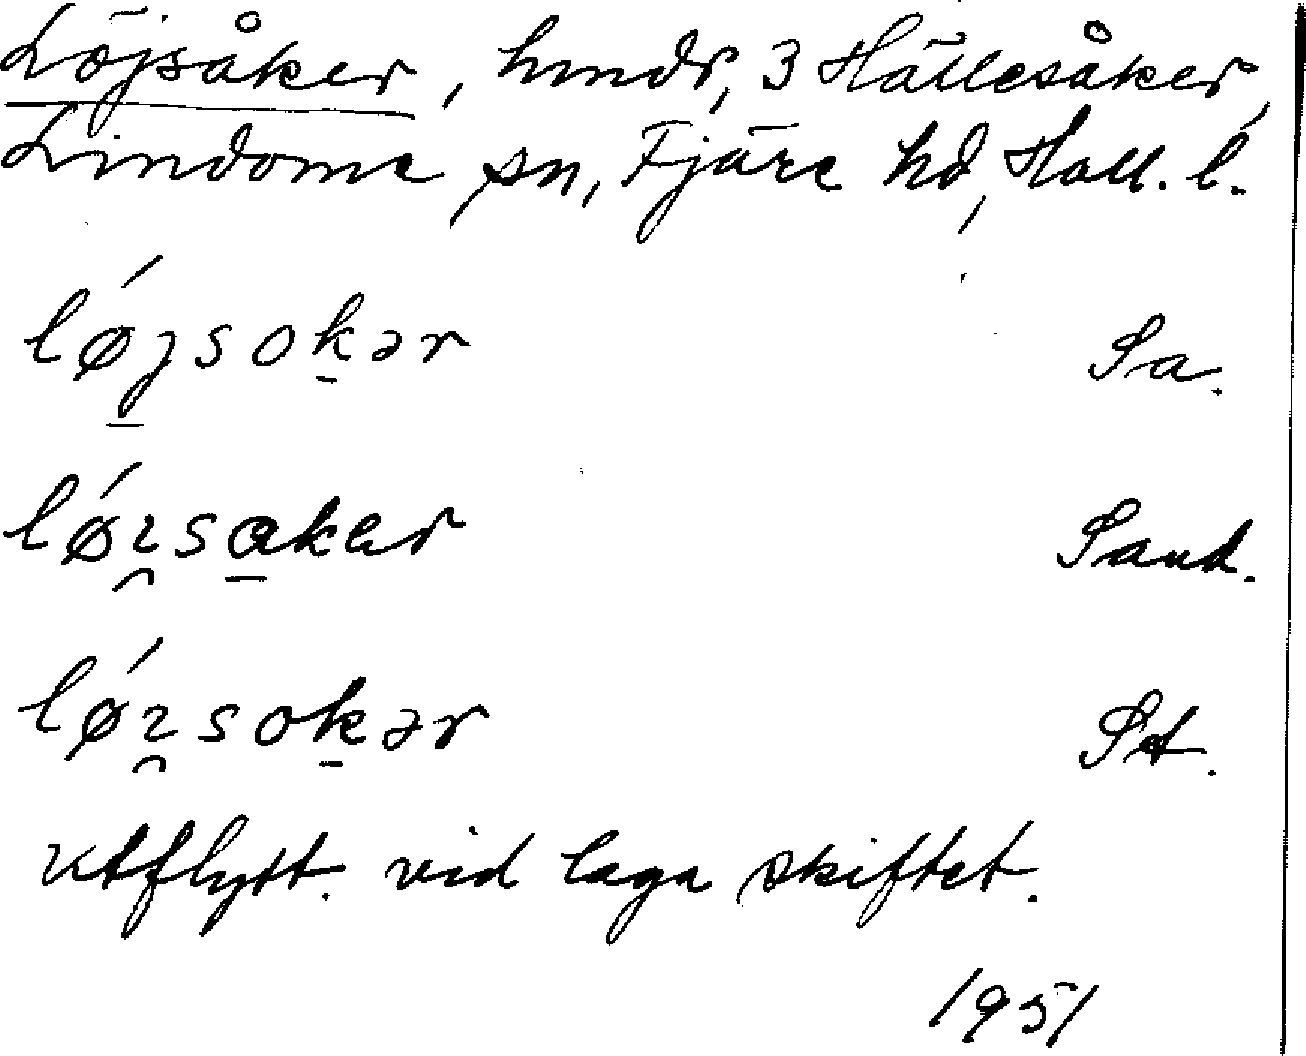 Löjsåker, hmdr, 3 Hällesåker,
Lindome sn, Fjäre hd, Hall. l.
lǿjsok̠ər Sa.
lǿɪ̯sa̠kər Sand.
lǿɪ̯sok̠ər St.
utflytt. vid laga skiftet.
1951